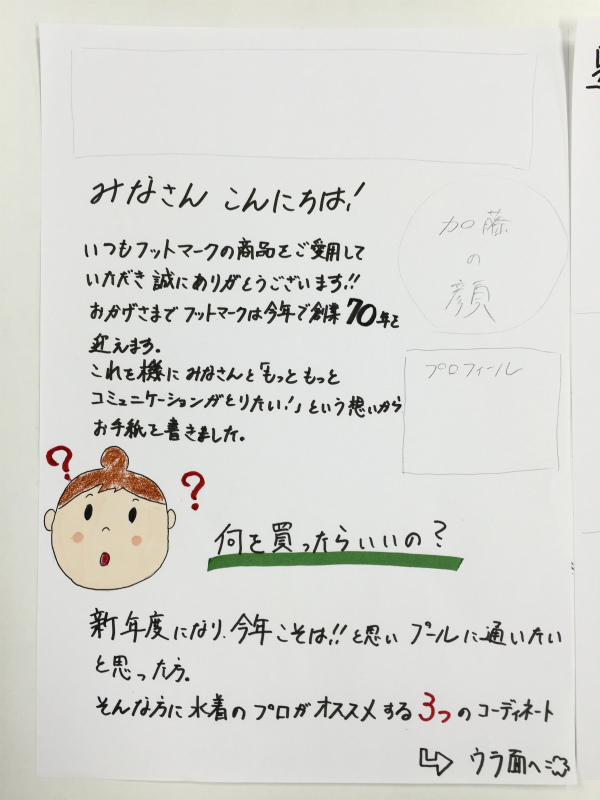 みなさん こんにちは!
いつもフットマークの商品をご愛用して
いただき 誠にありがとうございます!!
おかげさまで フットマークは今年で創業70年を
迎えます。
これを機に みなさんと「もっと もっと
コミュニケーションがとりたい!」という想いから
お手紙を書きました。
加藤
の
顔
プロフィール
? ?
何を買ったらいいの?
新年度になり、今年こそは!!と思い プールに通いたい
と思った方。
そんな方に 水着のプロがオススメする 3つのコーディネート
ウラ面へ